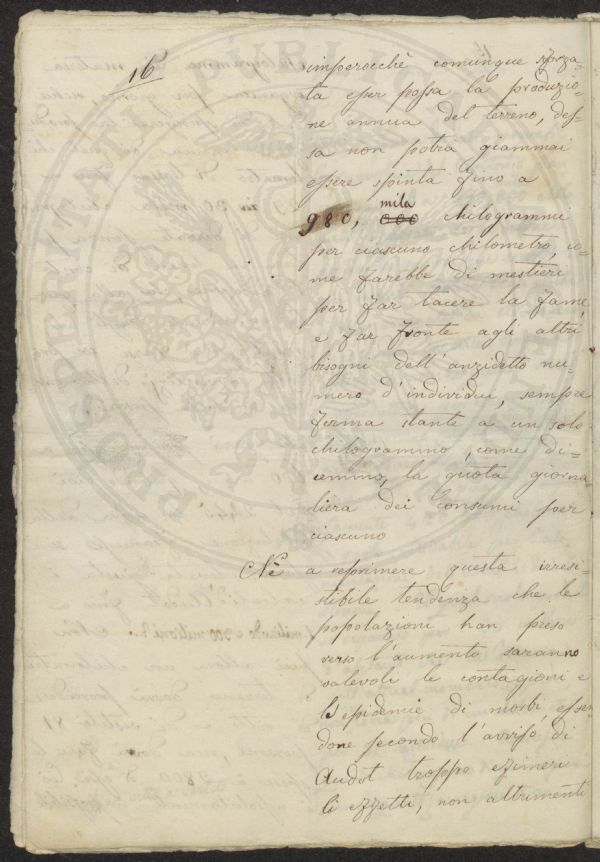 16
imperocchè comunque sforza-
ta esser possa la produzio-
ne annua del terreno, des-
sa non potra giammai
essere spinta fino a
mila
980, 000 chilogrammi
per ciascuno chilometro, co-
me farebbe di mestieri
per far tacere la fame
e far fronte agli altri
bisogni dell'anzidetto nu-
mero d'individui, sempre
ferma stante a un solo
chilogrammo, come di-
cemmo, la quota giorna
liera dei consumi per
ciascuno
Nè a reprimere questa irresi-
stibile tendenza che le
popolazioni han preso
verso l'aumento saranno
valevoli le contagioni e
le epidemie di morbi essen
done secondo l'avviso di
Audot troppo ezimeri
li effetti, non altrimenti